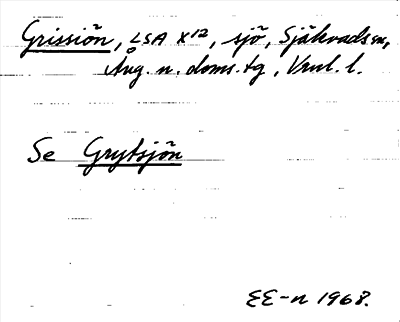 Grissiön, LSA X12, sjö, Själevads sn,
Ång. n. doms. tg, Vnl. l.
Se Grytsjön
EE-n 1968.